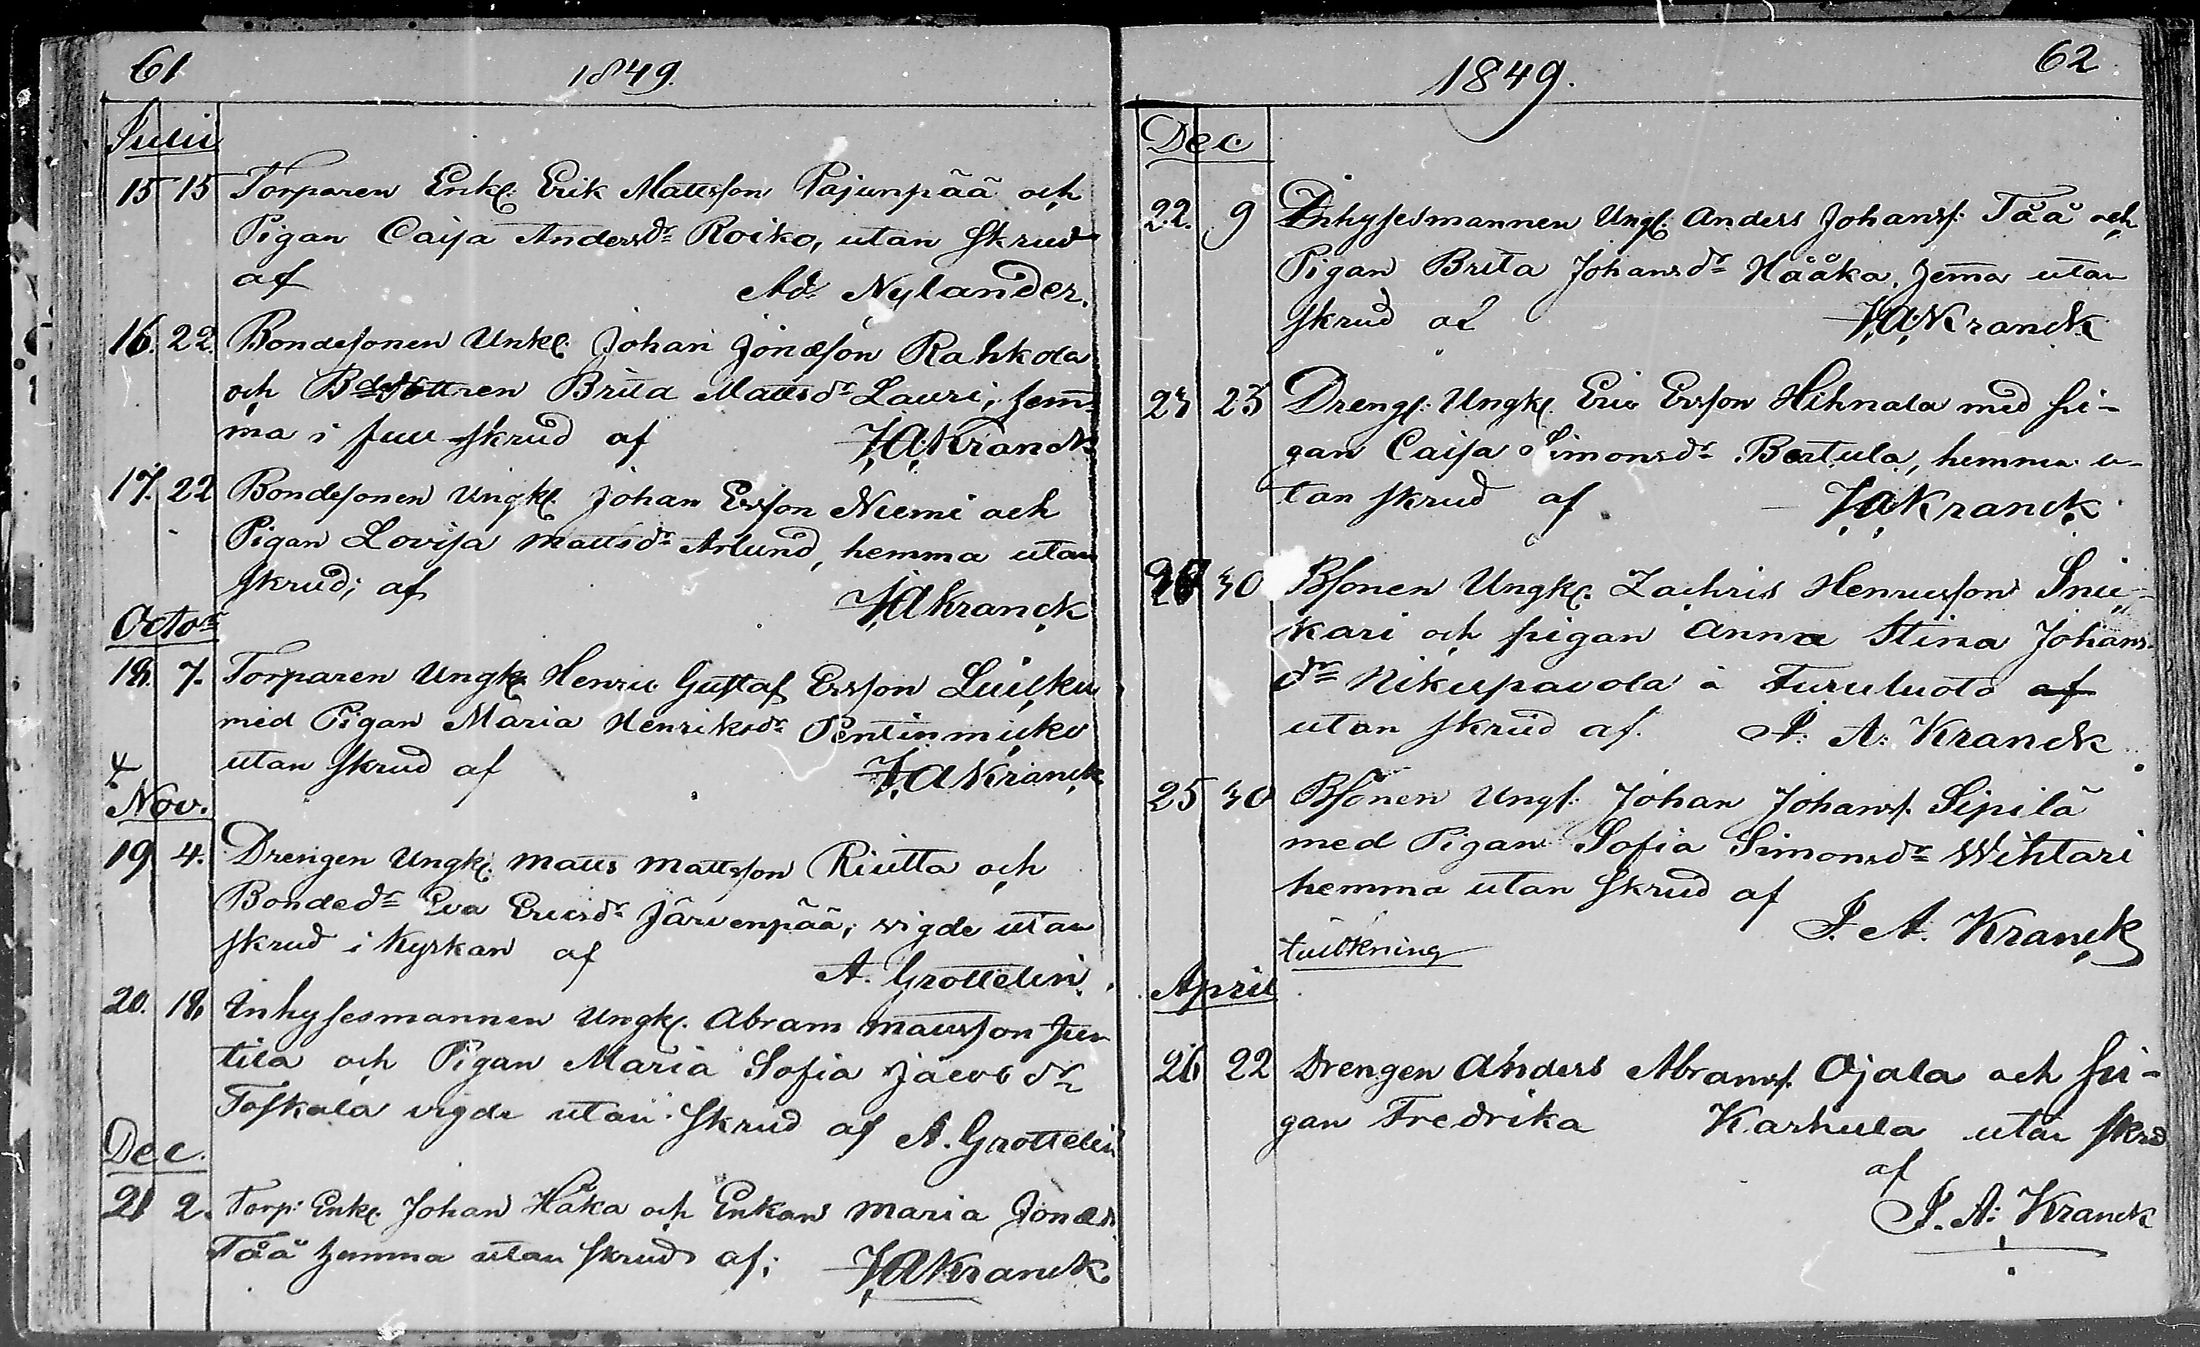 61
1849.
Julii
15 15 Torparen Enkl: Erik Mattsson Pajunpää och
Pigan Caisa Andersdr Roiko, utan skrud
af Ad. Nylander.
16. 22. Bondesonen Unkl. Johan Jonæson Rahkola
och Bdedottren Brita Mattsdr Lauri, hem¯
ma i full skrud af J.A.Kranck
17. 22 Bondesonen Ungkl. Johan Ersson Niemi och
Pigan Lovisa Mattsdr Arlund, hemma utan
skrud; af J.A.Kranck
Octobr
18. 7. Torparen Ungkl. Henric Gustaf Ersson Luisku
med Pigan Maria Henriksdr Pentinmicko
utan skrud af J.A.Kranck
Nov.
19 4. Drengen Ungkl. Matts Mattsson Riutta och
Bondedr Eva Ericsdr Järvenpää, vigde utan
skrud i Kyrkan af A. Grottelin.
20. 18 Inhysesmannen Ungkl. Abram Mattsson Jun
tila och Pigan Maria Sofia Jacobdr
Toskala vigde utan skrud af A. Grottelin
Dec.
21 2. Torp: Enkl. Johan Håka och Enkan Maria Jonædr
Tåå hemma utan skrud af; J.A.Kranck
62
1849.
Dec
22. 9 Inhysesmannen Ungk. Anders Johanss: Tåå och
Pigan Brita Johansdr Hååka, hema utan
skrud af J.A.Kranck
23 23 Drengs: Ungkl. Eric Ersson Hihnala med pi-
gan Caisa Simonsdr Bertula, hemma u-
tan skrud af J.A.Kranck
24 30 Bsonen Ungkl. Zachris Henricsson Snii-
kari och pigan Anna Stina Johans-
dr Nikuspavola å Furuluoto af
utan skrud af. J. A. Kranck
25 30 Bsonen Ungk: Johan Johanss. Sipilä
med Pigan Sofia Simonsdr Wihtari
hemma utan skrud af
J. A. Kranck
tillökning
April
26 22 Drengen Anders Abramss. Ojala och pi-
gan Fredrika Karhula utan skrud
af
J. A: Kranck